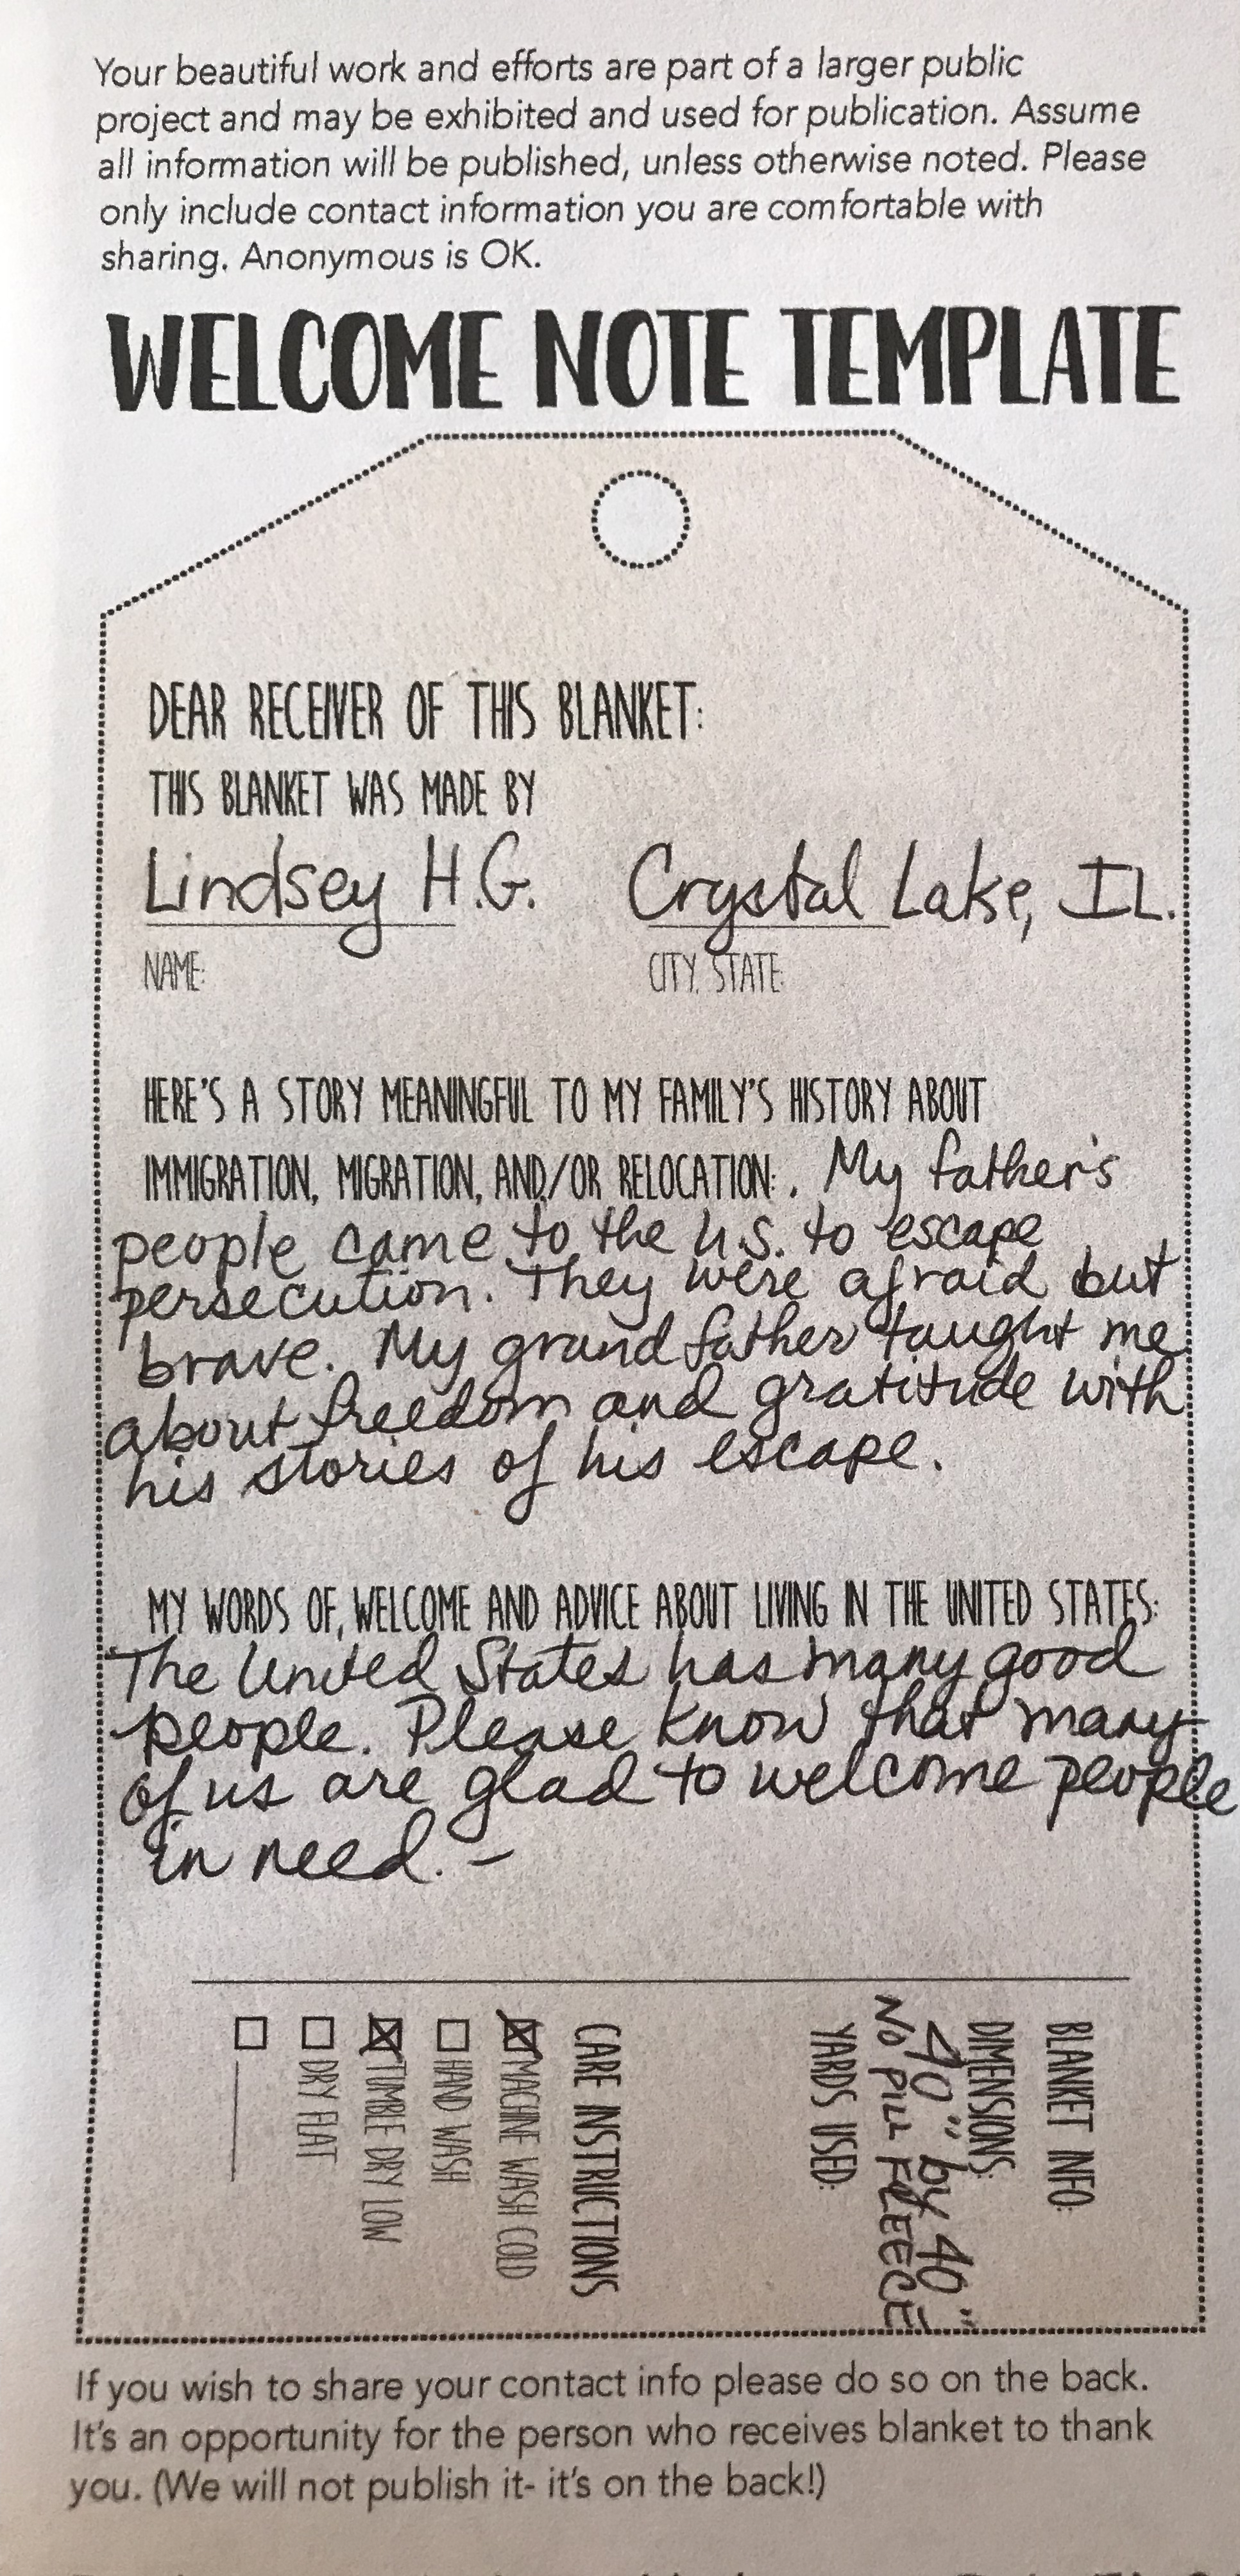 Your beautiful work and efforts are part of a larger public
project and may be exhibited and used for publication. Assume
all information will be published, unless otherwise noted. Please
only include contact information you are comfortable with
sharing. Anonymous is OK.
WELCOME NOTE TEMPLATE
DEAR RECEIVER OF THIS BLANKET:
THIS BLANKET WAS MADE BY
Lindsey H.G. Crystal Lake, IL.
NAME: CITY, STATE:
HERE'S A STORY MEANINGFUL TO MY FAMILY'S HISTORY ABOUT
IMMIGRATION, MIGRATION, AND/OR RELOCATION: . My father's
people came to the U.S. to escape
persecution. They were afraid but
brave. My grandfather taught me
about freedom and gratitude with
his stories of his escape.
MY WORDS OF WELCOME AND ADVICE ABOUT LIVING IN THE UNITED STATES:
The United States has many good
people. Please know that many
of us are glad to welcome people
in need. –
BLANKET INFO:
DIMENSIONS:
40" by 40"
NO PILL FLEECE
YARDS USED:
CARE INSTRICTIONS
☒ MACHINE WASH COLD
☐ HAND WASH
☒ TUMBLE DRY LOW
☐ DRY FLAT
☐
If you wish to share your contact info please do so on the back.
It's an opportunity for the person who receives blanket to thank
you. (We will not publish it- it's on the back!)